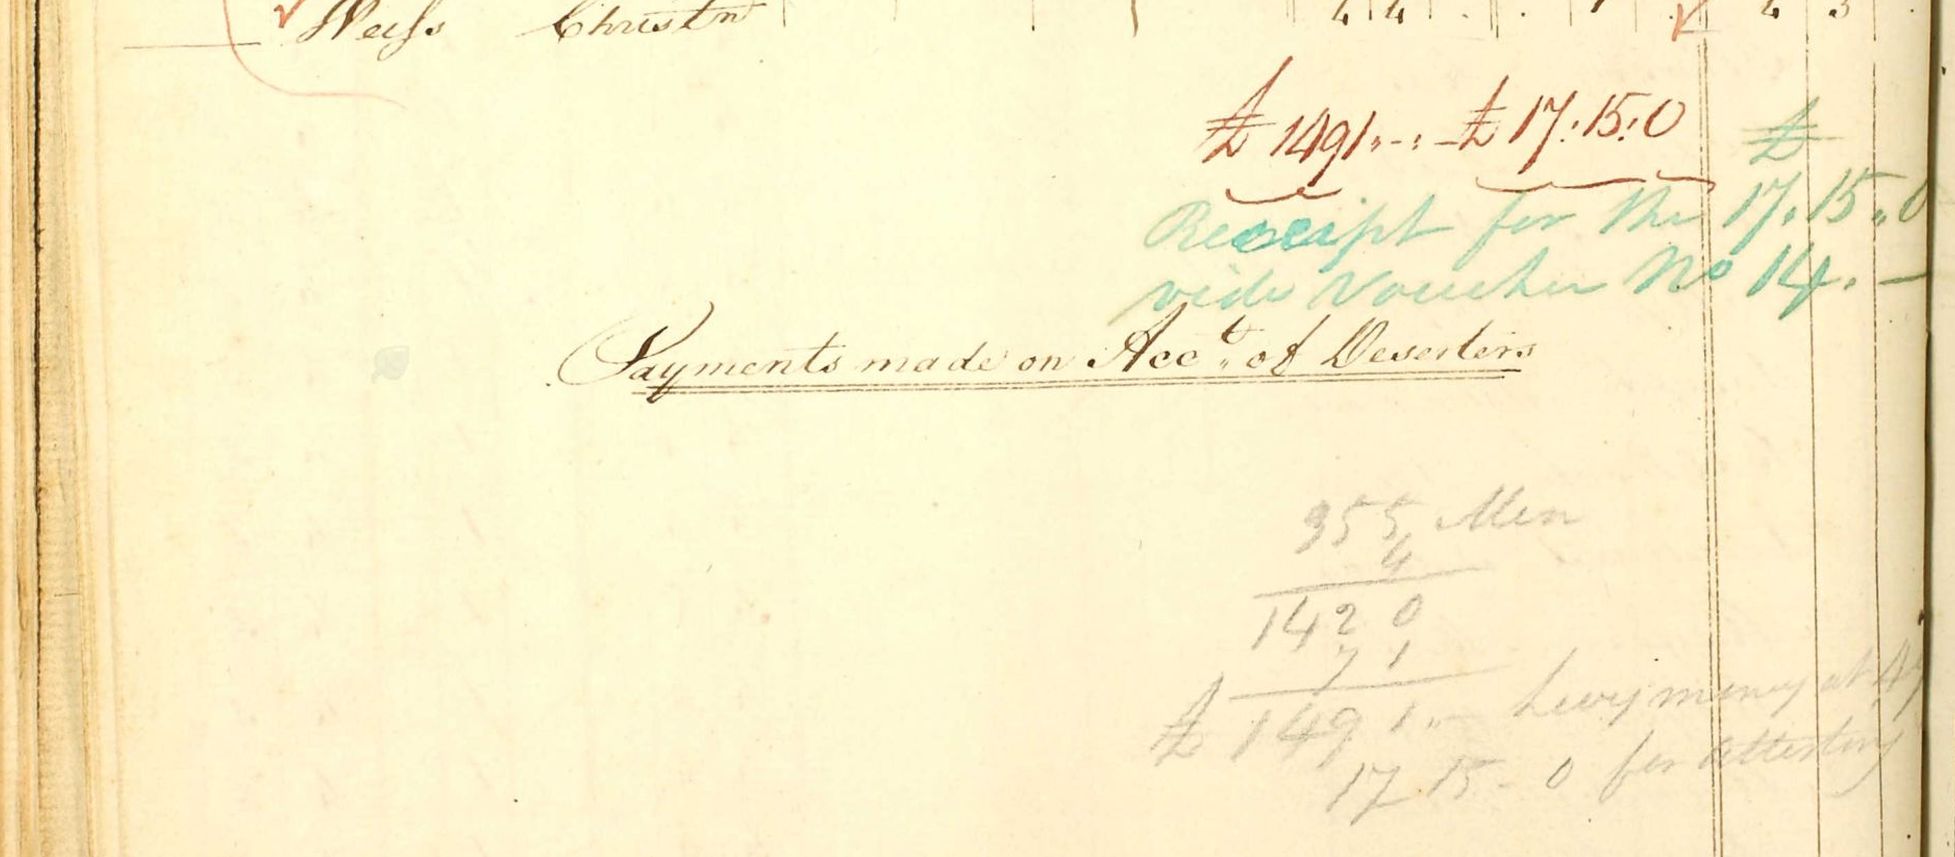 Weiſs Christn 4 4 . . 1 . 4 3
£ 1491 " - " - £ 17 : 15 : 0
£
Receipt for the 17 . 15 . 0
vide Voucher No 14 . -
Payments made on Acct. of Deserters
355 Men
4
1420
71
£ 1491 " - Levy money at
17 15 - 0 for attesting